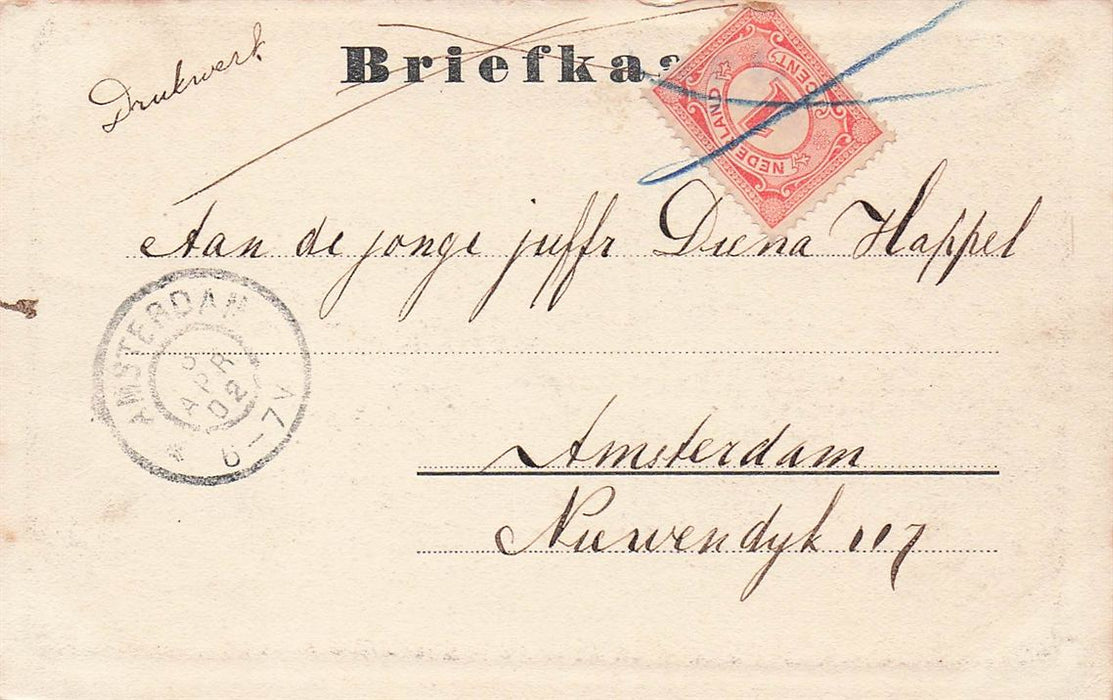 Drukwerk
Briefkaa
NEDERLAND
1
CENT
Aan de jonge juffr Diena Happel
AMSTERDAM
APR
02
6-7V
Amsterdam
Nieuwendyk 117